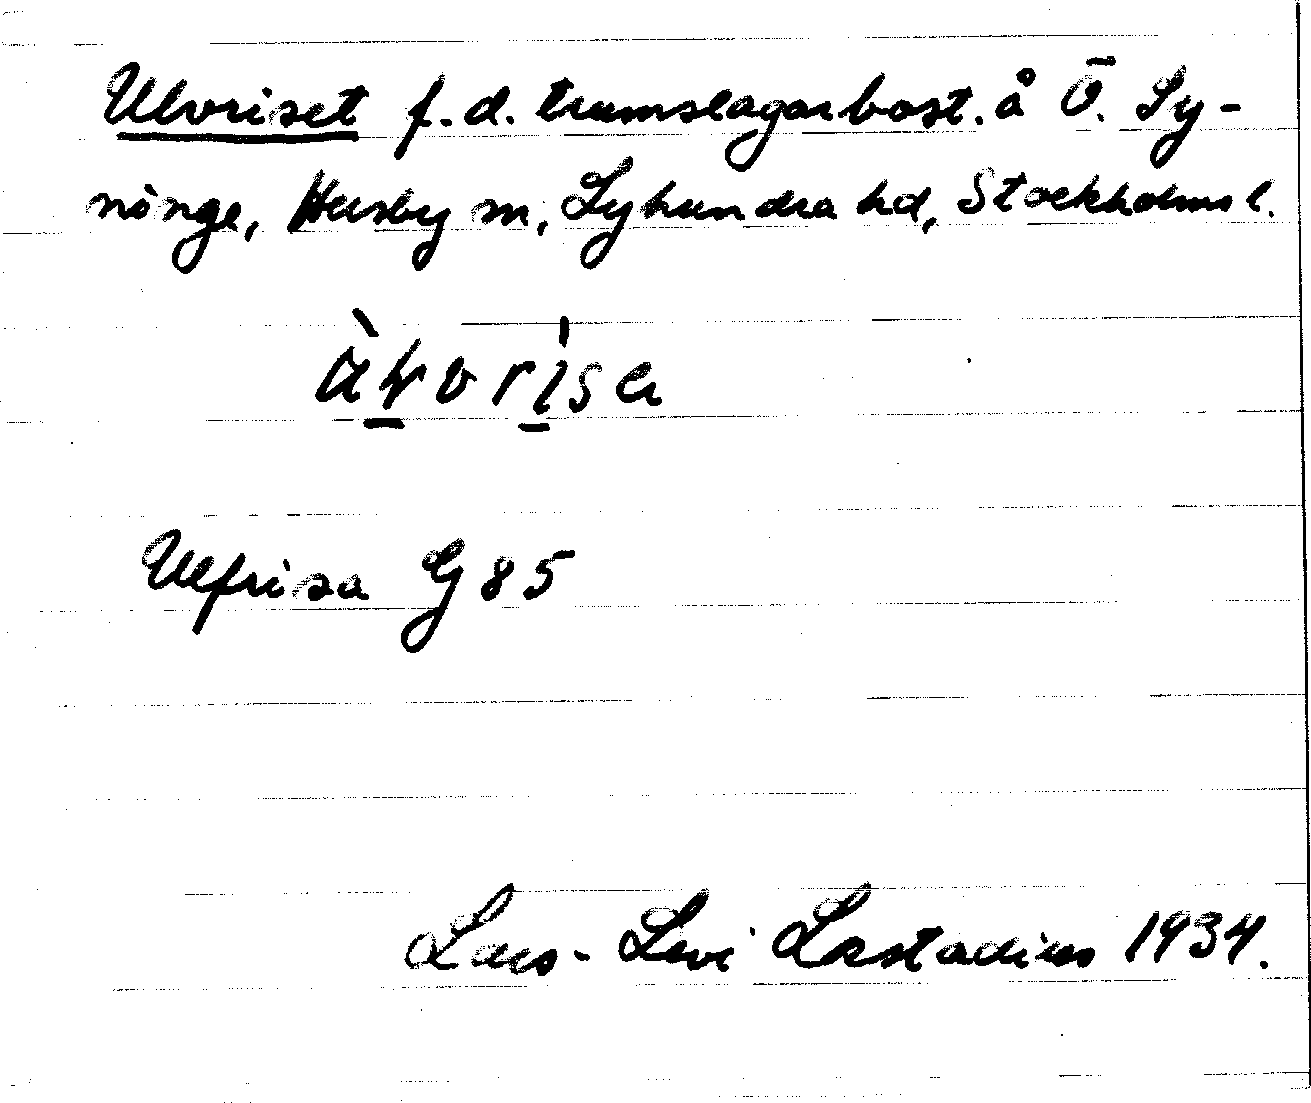 Ulvriset f.d. trumslagarbost. å Ö. Sy-
ninge, Husby m, Lyhundra hd, Stockholms l.
Ulfrisa G 85
Lars-Levi Læstadius 1934.